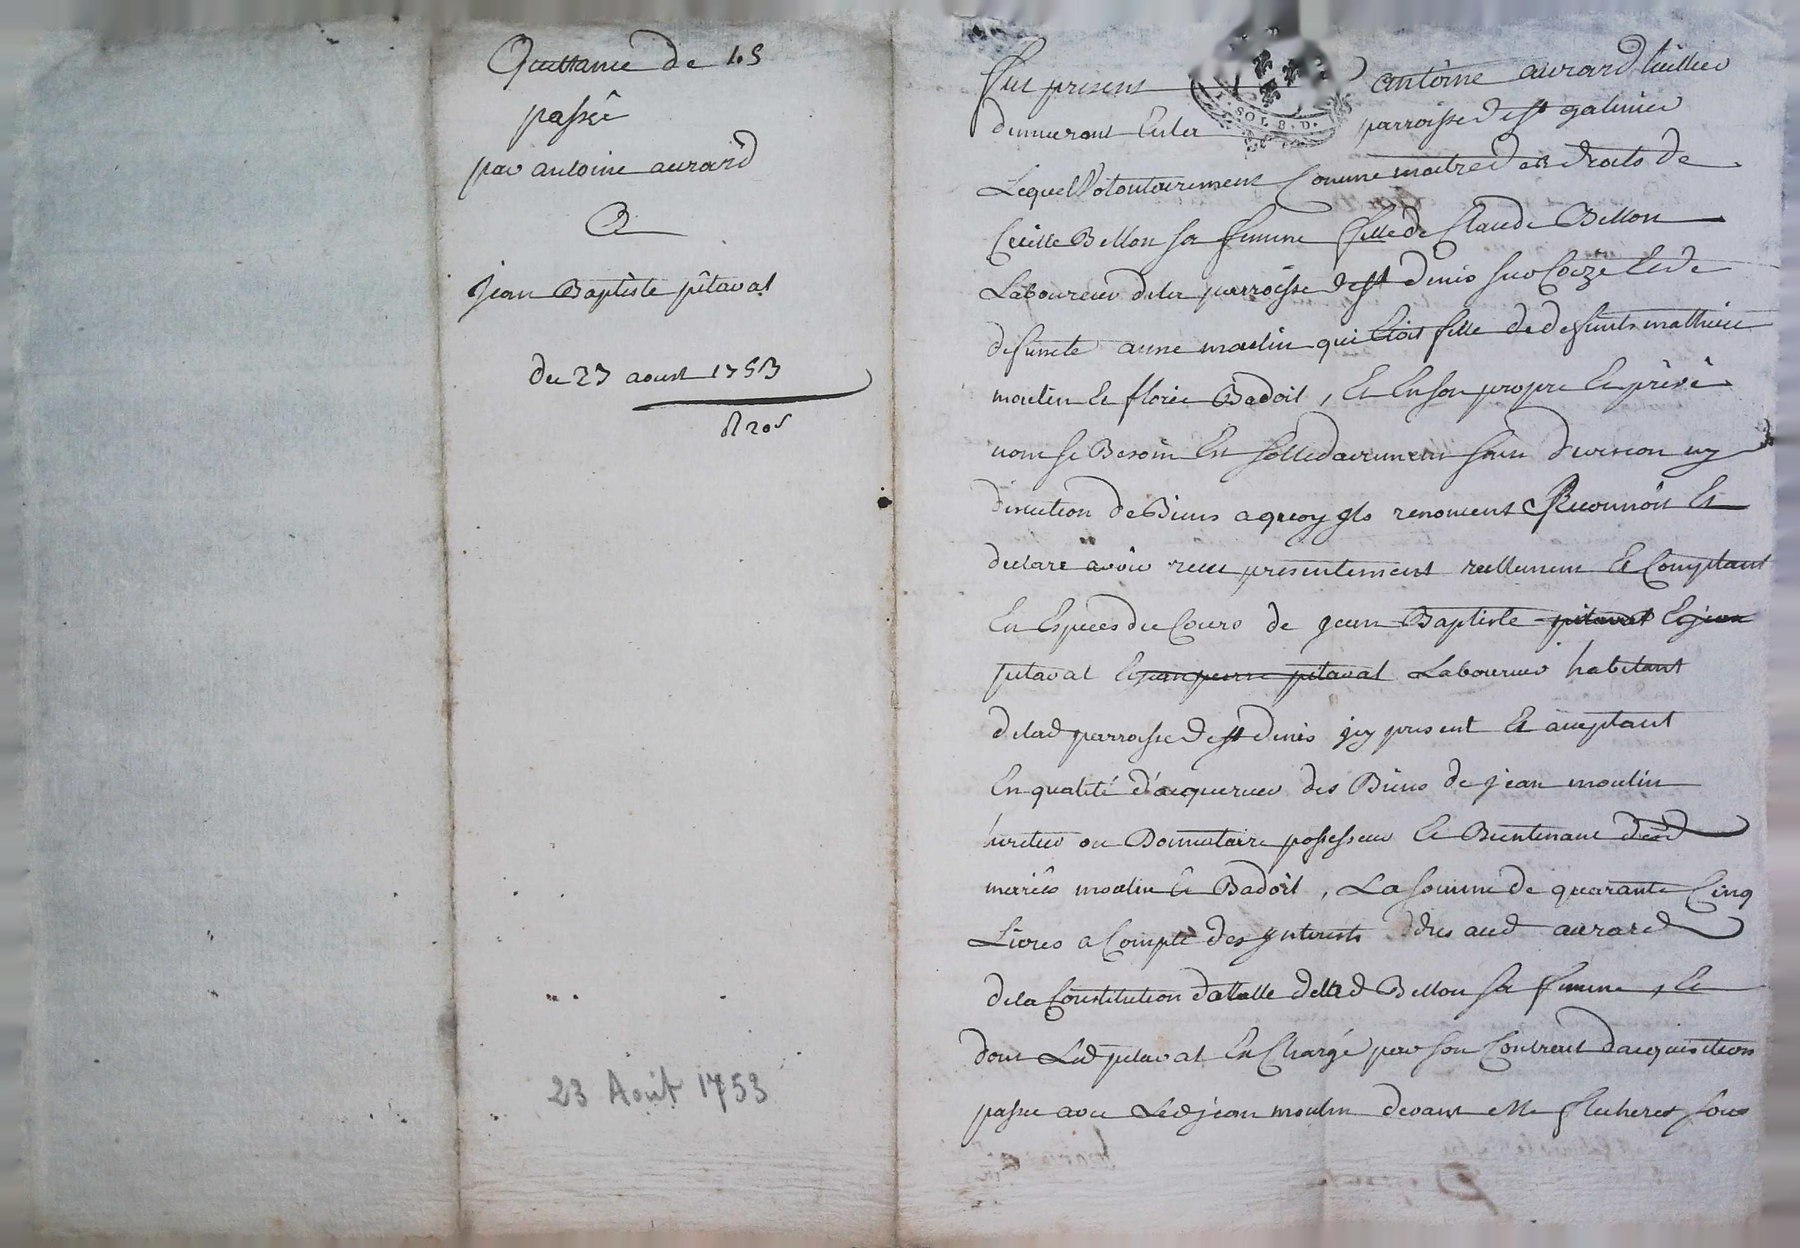 Quittance de 45
passée
par antoine aurard
A
jean Baptiste pitaval
du 23 aoust 1753
23 Août 1753
SOL 8. D.
fut present antoine aurard
demeurant parroisse de st galmier
Lequel Volontairement Comme maitre des droits de
Cecille Bellon sa femme fille de Claude Bellon
Laboureur dela parroisse de st denis sur Coize Et de
defuncte anne moulin qui Etoit fille de defunts mathieu
moulin Et florie Badoil, Et En son propre Et privé
nom se Besoin Est sollidairement sans division ny
discution de Biens a quoy renoncent Reconnoit Et
declare avoir receu presentement reellement Et Comptant
En Especes du Cours de jean Baptiste pitaval Et jean
pitaval Laboureur habitant
delad parroisse de st denis jcy present Et aceptant
En qualité d'acquereur des Biens de jean moulin
heritier ou Donnataire possesseur Et Bientenant desd
mariés moulin Et Badoil, La somme de quarante Cinq
Livres a Compte des jnterests deus aud aurard
dela Constitution dotalle de lad Bellon sa femme, Et
dont Led pitaval Est Chargé par son Contract d'acquisition
passé avec Led jean moulin devant Me sous